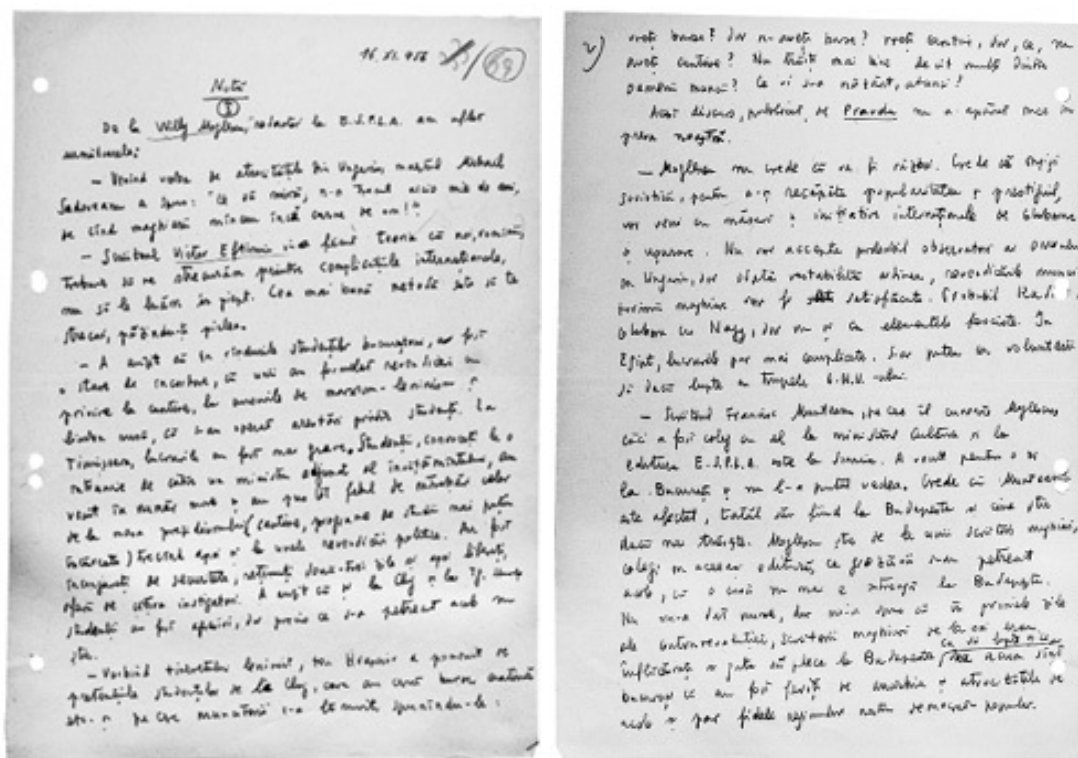 16.XI.956
69
Notă
I
De la Willy Moglescu, redactor la E.S.P.L.A. am aflat
următoarele:
– Venind vorba de atrocitățile din Ungaria, maestrul Mihail
Sadoveanu a spus: "Ce vă miră, n-a trecut nicio mie de ani,
de cînd maghiarii mîncau încă carne de om!"
– Scriitorul Victor Eftimiu a făcut teoria că noi, românii,
trebuie să ne strecurăm printre complicațiile internaționale,
nu să le luăm în piept. Cea mai bună metodă este să te
strecori, păzindu-ți pielea.
– A auzit că în rîndurile studenților bucureșteni, a fost
o stare de încordare, că unii au formulat revendicări cu
privire la cantine, la cursurile de marxism-leninism și
limba rusă, că s-au operat arestări printre studenți. La
Timișoara, lucrurile au fost mai grave. Studenții, convocați la o
întrunire de către un ministru adjunct al învățămîntului, au
venit în număr mare și au pus tot felul de întrebări celor
de la masa prezidiumului (cantine, programe de studii mai puțin
încărcate) trecînd apoi și la unele revendicări politice. Au fost
încercuiți de securitate, reținuți două-trei zile și apoi liberați,
afară de cîțiva instigatori. A auzit că și la Cluj și la Tg. Mureș
studenții au fost agitați, dar precis ce s-a petrecut acolo nu
știe.
– Vorbind tineretului, tov. a pomenit de
pretențiile studenților de la Cluj, care au cerut burse, cantină
etc. și pe care muncitorii i-a spunîndu-le:
2) vreți burse? Dar n-aveți burse? vreți cantine, dar, ce, nu
aveți cantine? Nu trăiți mai bine decît mulți dintre
oamenii muncii? Ce vi s-a năzărit, atunci?
Acest discurs, publicat de Pravda nu a apărut încă în
presa noastră.
– Moglescu nu crede că va fi război. Crede că și
sovietici, pentru a-și recăpăta popularitatea și prestigiul,
vor veni cu măsuri și inițiative internaționale de colaborare
și ușurare. Nu vor accepta probabil observatori ai O.N.U. în
Ungaria, dar odată restabilită ordinea, revendicările muncitorimii
maghiare vor fi satisfăcute. Probabil Kadar va
colabora cu Nagy, dar nu și cu elementele fasciste. În
Egipt, lucrurile par mai complicate. S-ar putea ca voluntarii
să ducă lupte cu trupele O.N.U.-ului.
– Scriitorul Francisc Munteanu, pe care îl cunoaște Moglescu,
căci a fost coleg cu el la ministerul Culturii și la
editura E.S.P.L.A. este la A venit pentru o zi
la București și nu l-a putut vedea. Crede că Munteanu
este afectat, tatăl său fiind la Budapesta și cine știe
dacă mai trăiește. Moglescu știe de la unii scriitori maghiari,
colegi în aceeași editură, ce grozăvii s-au petrecut
acolo, că o casă nu mai e întreagă la Budapesta.
Nu mi-a dat nume, dar mi-a spus că în primele zile
ale contrarevoluției, scriitorii maghiari de la noi erau
înflăcărați și gata să plece la Budapesta, ca să lupte acum sînt
bucuroși că au fost feriți de anarhia și atrocitățile de
acolo și par fideli regimului nostru democrat-popular.